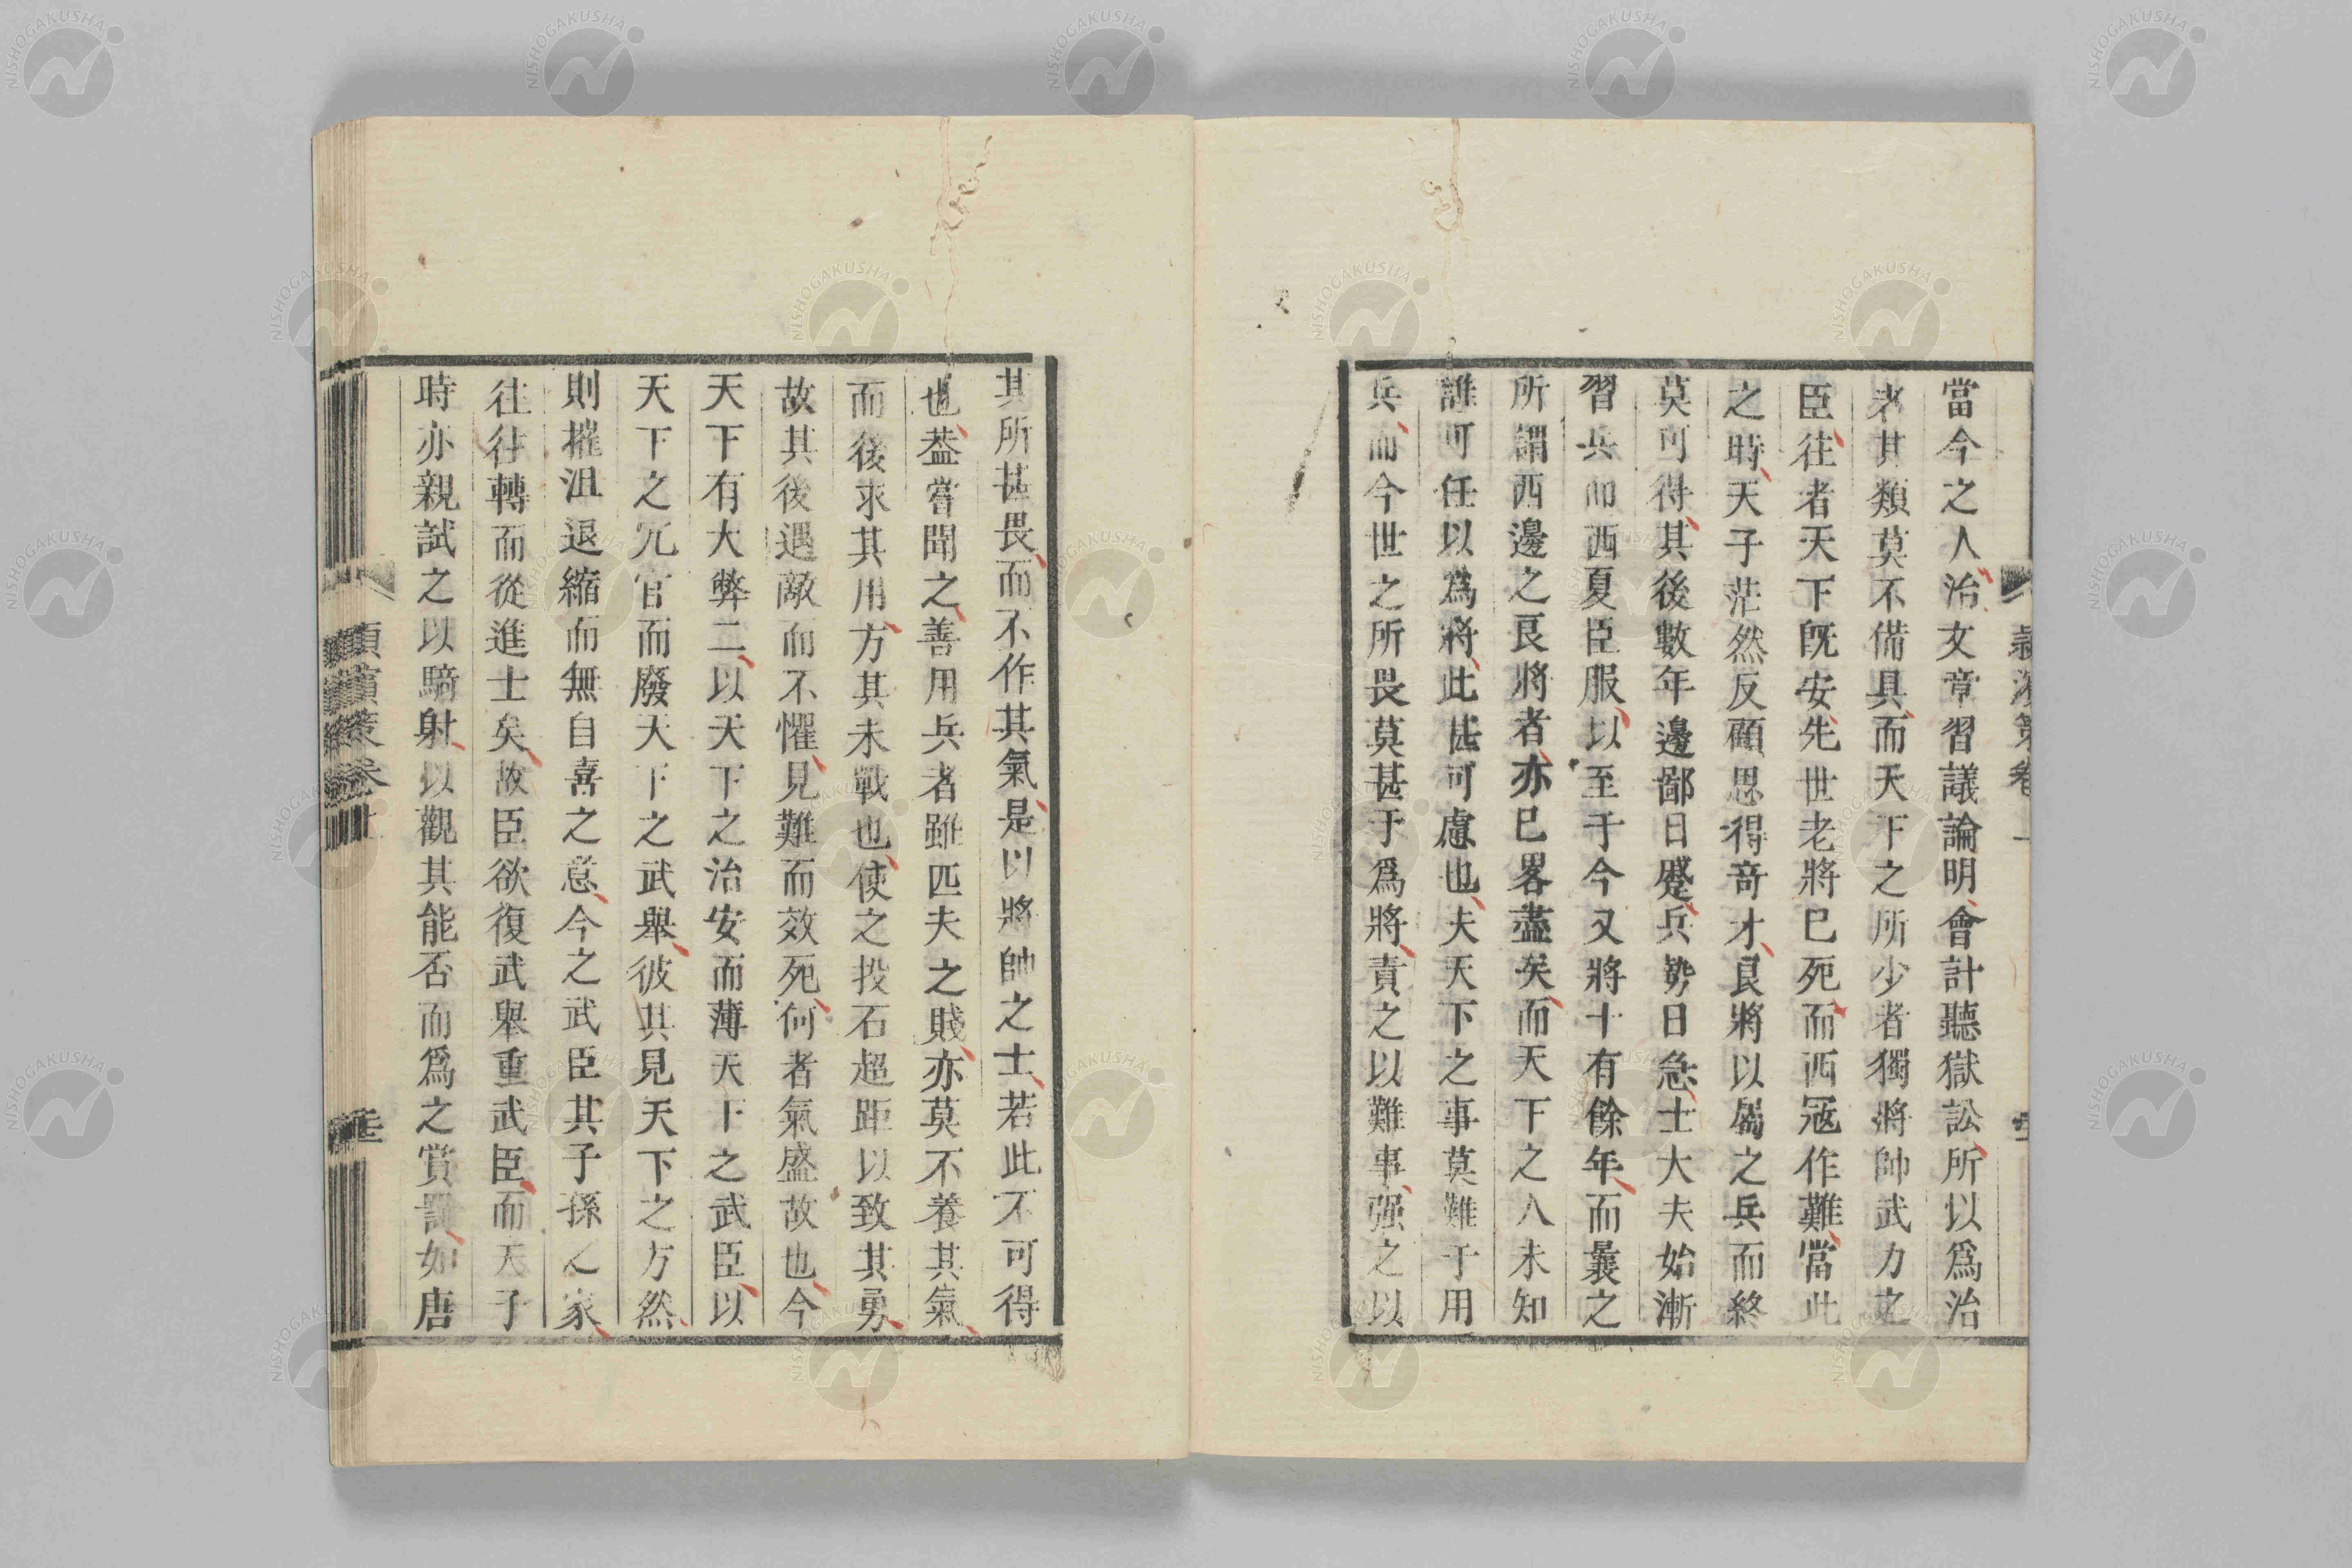 當今之人治文章習議論明會計聽獄訟所以爲治
者其類莫不備具而天下之所少者獨將帥武力之
臣往者天下旣安先世老將已死而西冦作難當此
之時天子茫然反顧思得奇才良將以屬之兵而終
莫可得其後數年邊鄙日蹙兵勢日急士大夫始漸
習兵而西夏臣服以至于今又將十有餘年而曩之
所謂西邊之良將者亦已畧盡矣而天下之人未知
誰可任以爲將此甚可慮也夫天下之事莫難于用
兵而今世之所畏莫甚于爲將責之以難事强之以
其所甚畏而不作其氣是以將帥之士若此不可得
也葢嘗聞之善用兵者雖匹夫之賤亦莫不養其氣
而後求其用方其未戰也使之投石超距以致其勇
故其後遇敵而不懼見難而效死何者氣盛故也今
天下有大弊二以天下之治安而薄天下之武臣以
天下之冗官而廢天下之武舉彼其見天下之方然
則摧沮退縮而無自喜之意今之武臣其子孫之家
往往轉而從進士矣故臣欲復武舉重武臣而天子
時亦親試之以騎射以觀其能否而爲之賞罰如唐
NISHOGAKUSHA